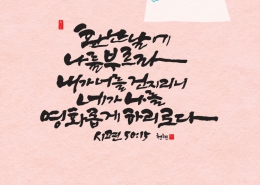 환난날에
나를부르라
내가너를 건지리니
네가 나를
영화롭게 하리로다
시편 50:15